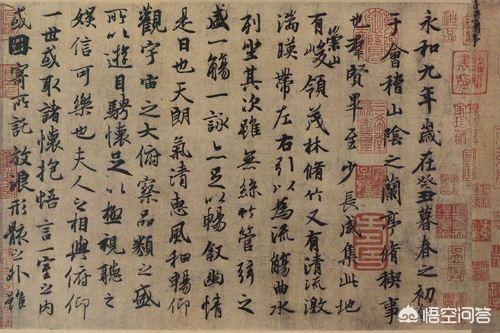 永和九年歲在癸丑暮春之初
于會稽山陰之蘭亭脩稧事
也羣賢畢至少長咸集此地
有崇山峻領茂林脩竹又有清流激
湍暎帶左右引以為流觴曲水
列坐其次雖無絲竹管弦之
盛一觴一詠亦足以暢敘幽情
是日也天朗氣清惠風和暢仰
觀宇宙之大俯察品類之盛
所以遊目騁懷足以極視聽之
娛信可樂也夫人之相與俯仰
一世或取諸懷抱悟言一室之內
或因寄所託放浪形骸之外雖
悟空问答